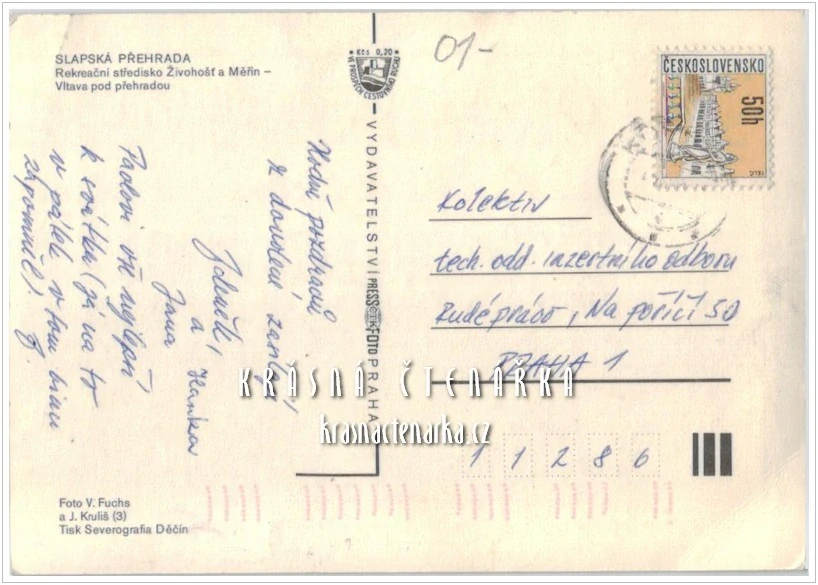 SLAPSKÁ PŘEHRADA
Rekreační středisko Živohošť a Měřín –
Vltava pod přehradou
Kčs 0,20
VE PROSPĚCH CESTOVNÍHO RUCHU
01-
ČESKOSLOVENSKO
50h
Hodně pozdravů
z dovolené zasílají
Zdeněk,
a
Jana
Hanka
Pavlovi vše nejlepší
k svátku (já na to
v pátek v tom
zapomněl)
VYDAVATELSTVÍ PRESSFOTO PRAHA
Kolektiv
tech. odd. inzertního odboru
Rudé právo, Na poříčí 30
PRAHA 1
KRÁSNÁ ČTENÁŘKA
krasnactenarka.cz
1 1 2 8 6
Foto V. Fuchs
a J. Kruliš (3)
Tisk Severografia Děčín